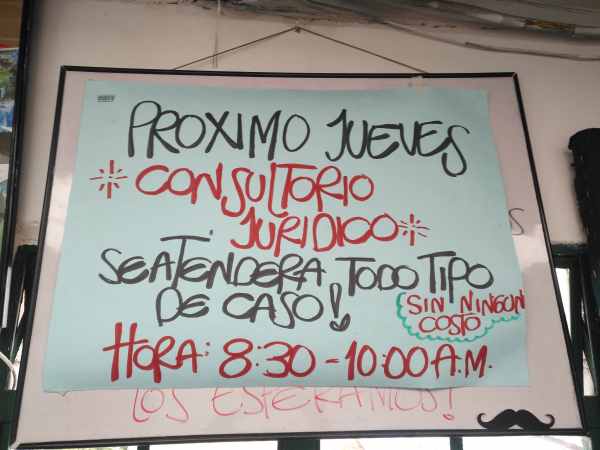 PROXIMO JUEVES
CONSULTORIO
JURIDICO
SE ATENDERA TODO TIPO
DE CASO!
SIN NINGUN
COSTO
HORA: 8:30 - 10:00 A.M.
LOS ESPERAMOS!